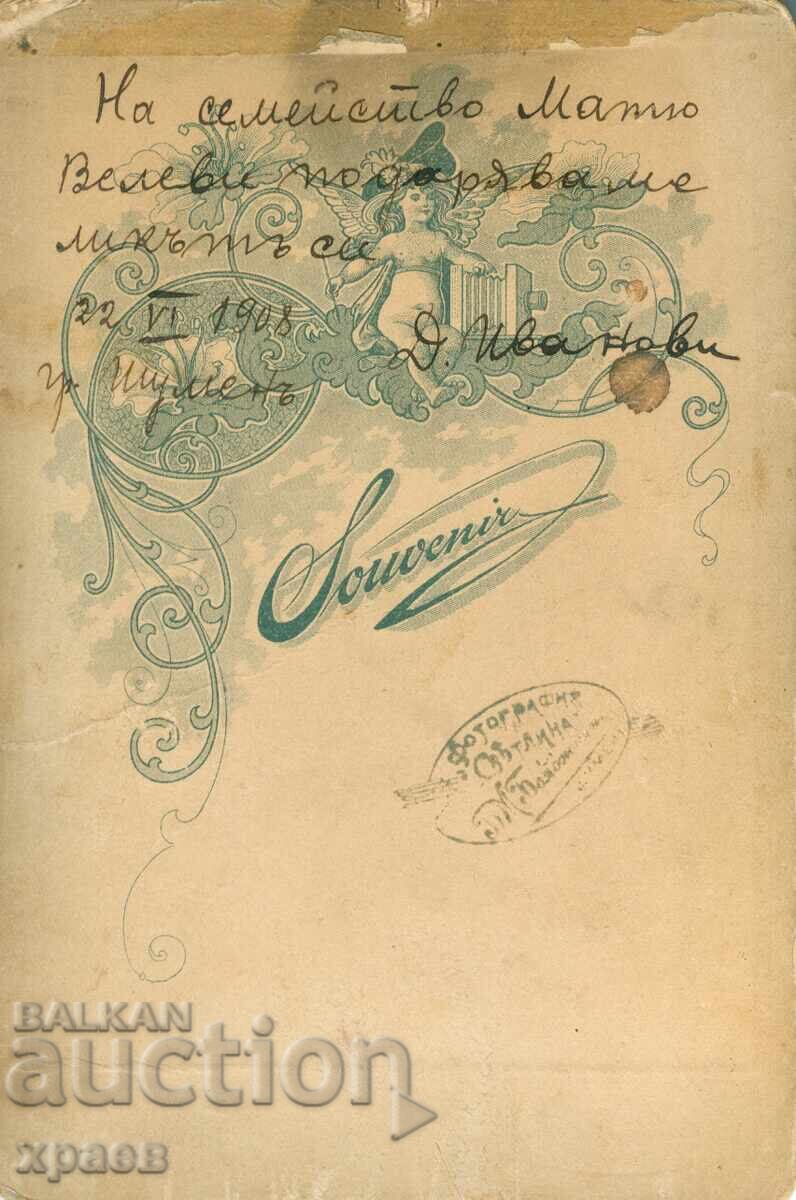 На семейство Матю
Велеви подаряваме
ликътъ си
22 VI 1908
Д. Иванови
гр. Шуменъ
Souvenir
ФОТОГРАФИЯ
СВѢТЛИНА
BALKAN
auction
храев